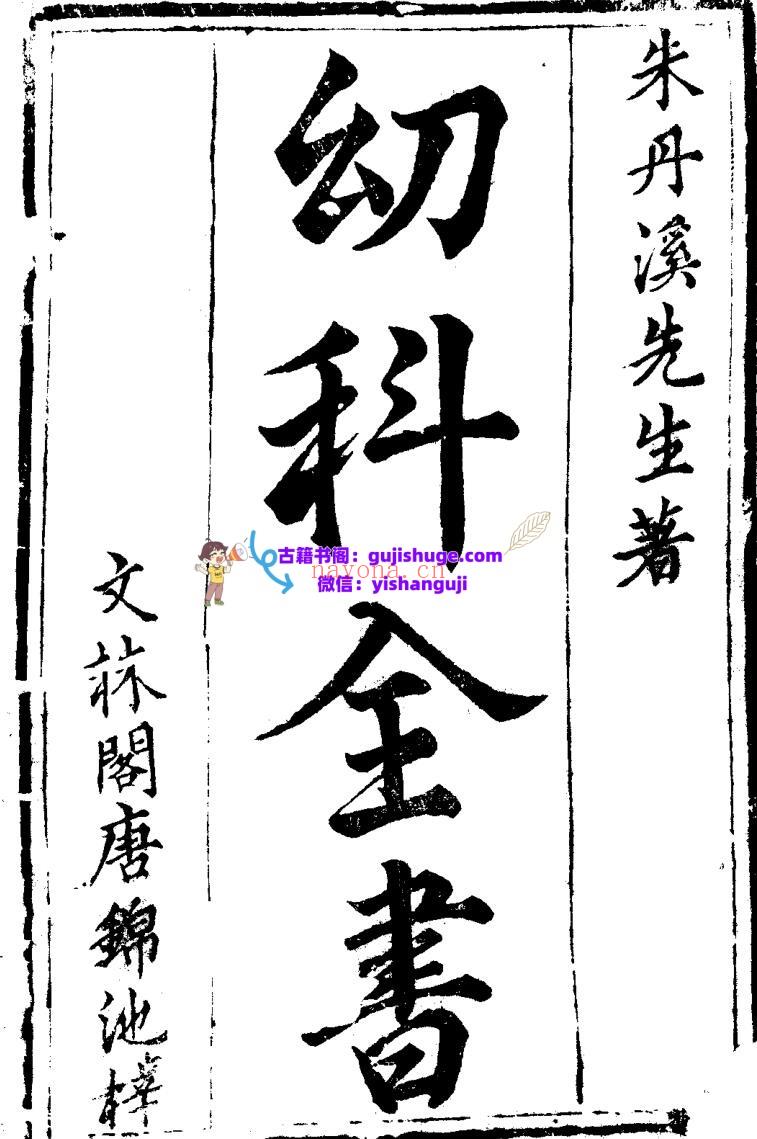 朱丹溪先生著
幼科全書
文秝閣唐錦池梓
古籍书阁：gujishuge.com
nayona.cn
微信：yishanguji